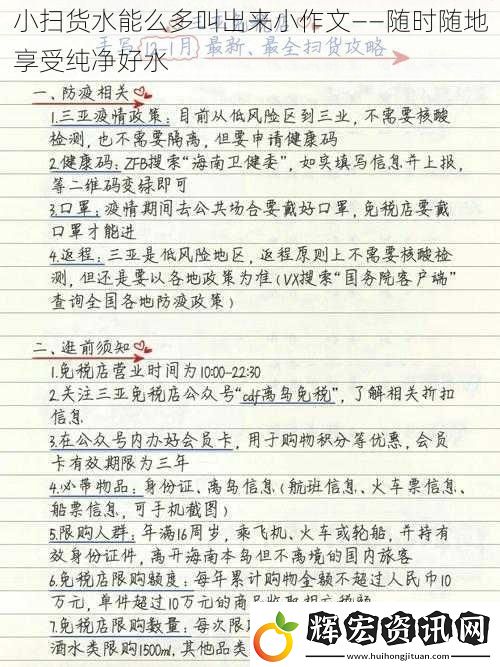 小扫货水能么多叫出来小作文——随时随地
享受纯净好水
12-1月 最新、最全扫货攻略
一、防疫相关
1.三亚疫情政策：目前从低风险区到三亚，不需要核酸
检测，也不需要隔离，但要申请健康码
2.健康码：ZFB搜索“海南卫健委”，如实填写信息并上报，
等二维码变绿即可
3.口罩：疫情期间去公共场合要戴好口罩，免税店要戴
口罩才能进
4.返程：三亚是低风险地区，返程原则上不需要核酸检
测，但还是要以各地政策为准（VX搜索“国务院客户端”
查询全国各地防疫政策）
二、逛前须知
1.免税店营业时间为10:00-22:30
2.关注三亚免税店公众号“cdf离岛免税”，了解相关折扣
信息
3.在公众号内办好会员卡，用于购物积分等优惠，会员
卡有效期限为三年
4.必带物品：身份证、离岛信息（航班信息、火车票信息、
船票信息，可手机截图）
5.限购人群：年满16周岁，乘飞机、火车或轮船，并持有
效身份证件，离开海南本岛但不离境的国内旅客
6.免税店限购额度：每年累计购物金额不超过人民币10
万元，单件超过10万元的商品收取相应税额
7.免税店限购数量：每次限
酒水类限购1500ml，其他品类
辉宏资讯网
www.huihongjituan.com